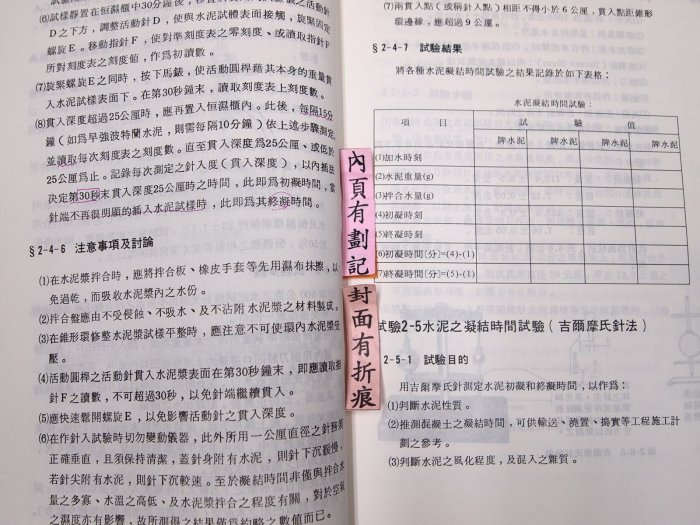 (6)試樣靜置在恒濕櫃中30分鐘後,
D之下方,調整活動針D,使與水泥試體表面接觸,旋緊固定
螺旋E。移動指針F,使對準刻度表之零刻度、或讀取指針F
所對刻度表之刻度值,作爲初讀數。
(7)旋緊螺旋E之同時,按下馬錶,使活動圓桿藉其本身的重量貫
入水泥試樣表面下。在第30秒鐘末,讀取刻度表上刻度數。
(8)貫入深度超過25公厘時,應再置入恒濕櫃內。此後,每隔15分
鐘(如爲早強波特蘭水泥,則需每隔10分鐘)依上述步驟測定,
並讀取每次刻度表之刻度數。直至貫入深度爲25公厘、或低於
25公厘爲止。記錄每次測定之針入度(貫入深度),以內插法
決定第30秒末貫入深度25公厘時之時間,此即爲初凝時間,當
針端不再很明顯的插入水泥試樣時,此即爲其終凝時間。
§2-4-6 注意事項及討論
(1)在水泥漿拌合時,應將拌合板、橡皮手套等先用濕布抹擦,以
免過乾,而吸收水泥漿內之水份。
(2)拌合盤應由不受侵蝕、不吸水、及不沾附水泥漿之材料製成。
(3)在錐形環修整水泥漿試樣平整時,應注意不可使環內水泥漿受
壓。
(4)活動圓桿之活動針貫入水泥漿表面在第30秒鐘末,即應讀取指
針F之讀數,不可超過30秒,以免針端繼續貫入。
(5)應快速鬆開螺旋E,以免影響活動針之貫入深度。
(6)在作針入試驗時切勿變動儀器,此外所用一公厘直徑之針務須
正確垂直,且須保持清潔,蓋針身附有水泥,則針下沉緩慢,
若針尖附有水泥,則針下沉較速。至於凝結時間非僅與拌合水
量之多寡、水溫之高低、及水泥漿拌合之程度有關,對於空氣
之濕度亦有影響,故所測得之結果僅爲約略之數值而已。
內頁有劃記
封面有折痕
(7)兩貫入點(或稱針入點)相距不得小於6公厘,貫入點距錐形
環邊緣,應超過9公厘。
§2-4-7 試驗結果
將各種水泥凝結時間試驗之結果記錄於如下表格:
水泥凝結時間試驗:
項 目 試 驗 值
牌水泥 牌水泥 牌水泥
(1)加水時刻
(2)水泥重量(g)
(3)拌合水量(g)
(4)初凝時刻
(5)終凝時刻
(6)初凝時間(分)=(4)-(1)
(7)終凝時間(分)=(5)-(1)
試驗2-5水泥之凝結時間試驗(吉爾摩氏針法)
2-5-1 試驗目的
用吉爾摩氏針測定水泥初凝和終凝時間,以作爲:
(1)判斷水泥性質。
(2)推測混凝土之凝結時間,可供輸送、澆置、搗實等工程施工計
劃之參考。
(3)判斷水泥之風化程度,及混入之雜質。